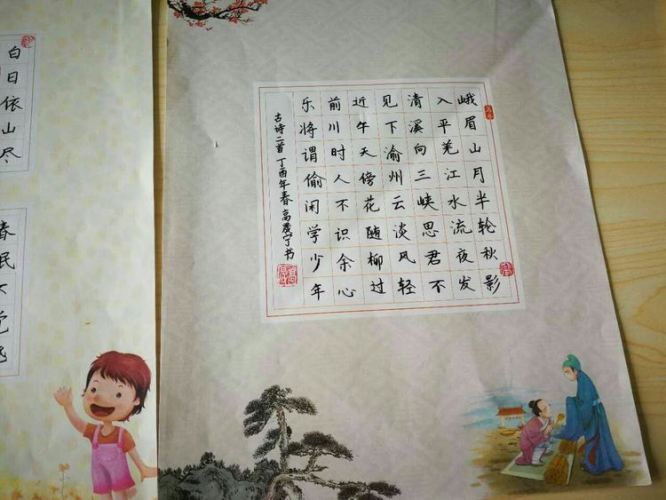 峨眉山月半轮秋影
入平羌江水流夜发
清溪向三峡思君不
见下渝州云淡风轻
近午天傍花随柳过
前川时人不识余心
乐将谓偷闲学少年
古诗二首 丁酉年春 高宁书
白日依山尽
春眠不觉